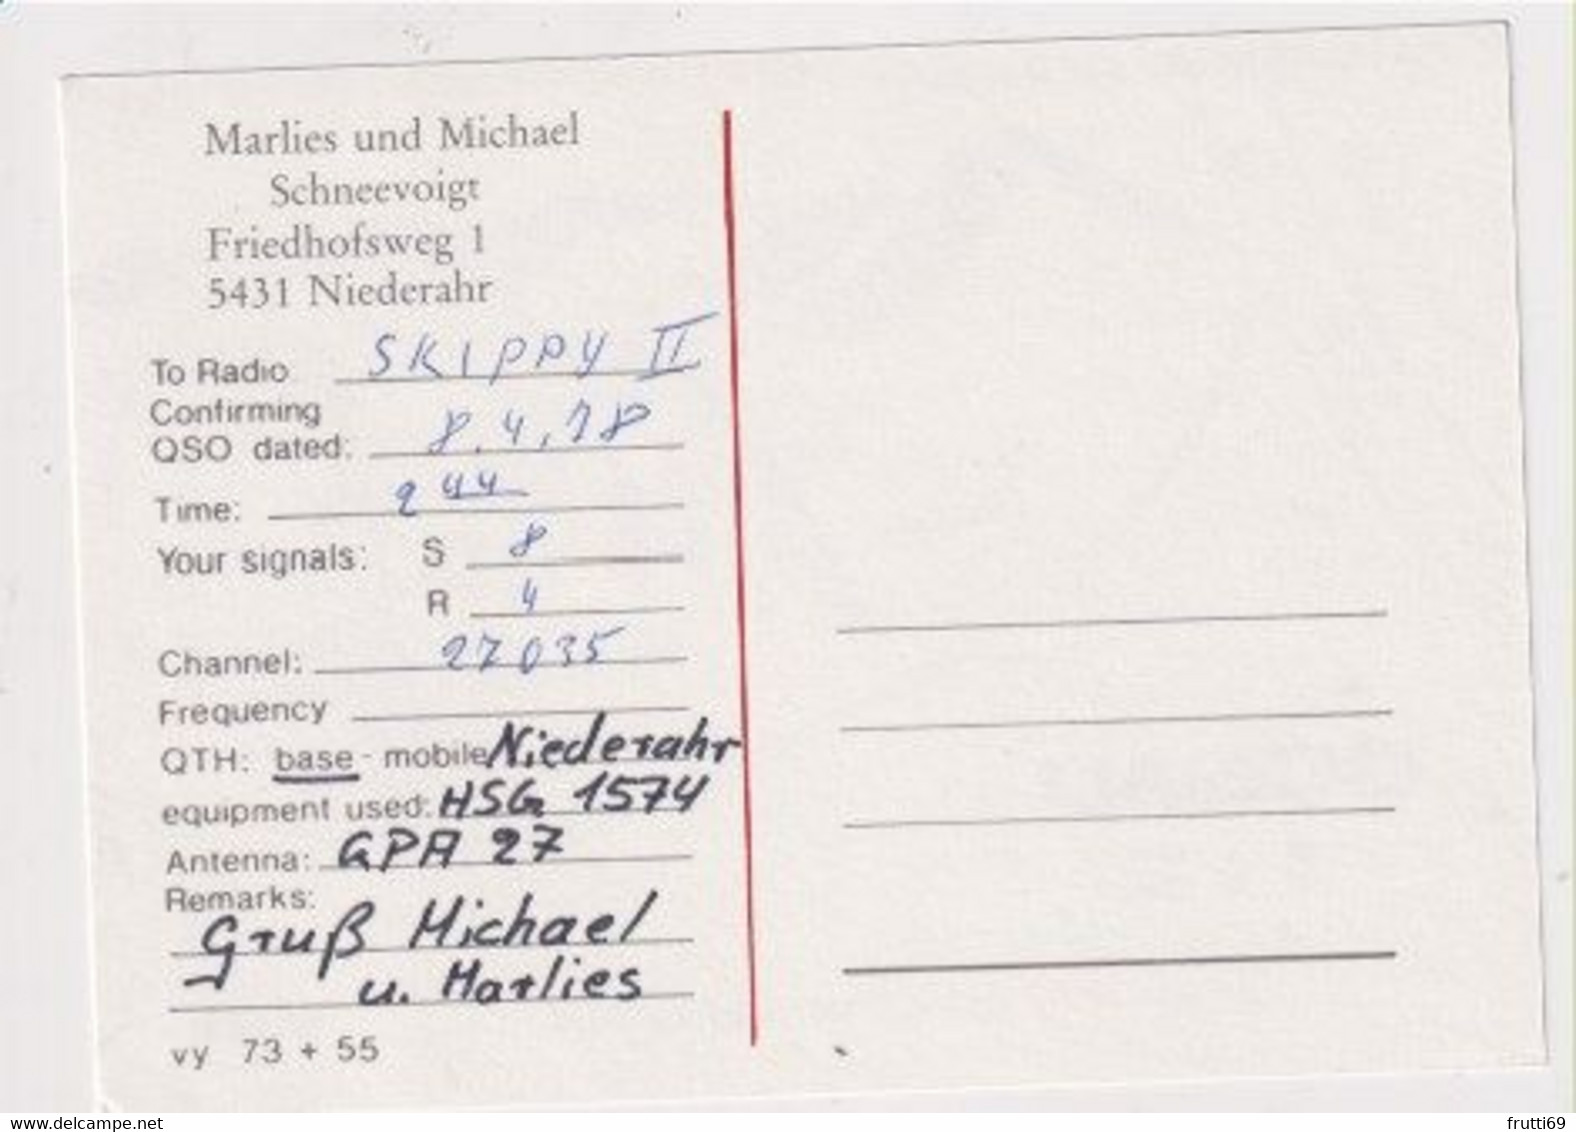 Marlies und Michael
Schneevoigt
Friedhofsweg 1
5431 Niederahr
To Radio SKIPPY II
Confirming
QSO dated: 8.4.78
Time: 2 44
Your signals: S 8
R 4
Channel: 27035
Frequency
QTH: base - mobile Niederahr
equipment used: HSG 1574
Antenna: GPA 27
Remarks:
Gruß Michael
u. Marlies
vy 73 + 55
www.delcampe.net
frutti69